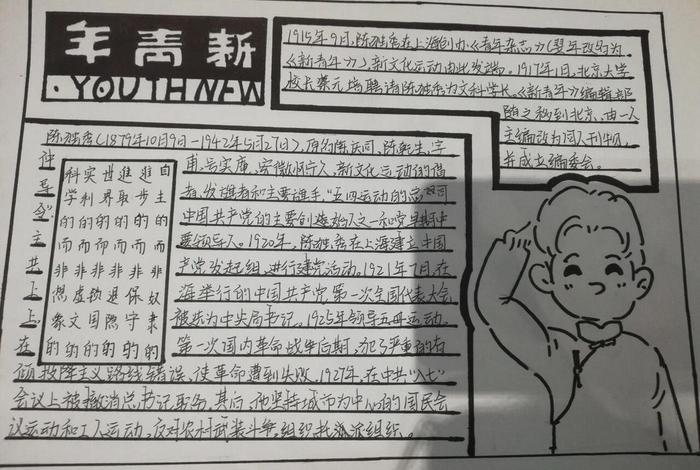 新青年
YOUTH NEW
1915年9月,陈独秀在上海创办《青年杂志》(翌年改名为
《新青年》),新文化运动由此发端。1917年1月,北京大学
校长蔡元培聘请陈独秀为文科学长。《新青年》编辑部
随之移到北京,由一人
主编改为同人刊物,
并成立编委会。
陈独秀(1879年10月9日—1942年5月27日),原名陈庆同、陈乾生,字
仲甫,号实庵,安徽怀宁人,新文化运动的倡
导者,发起者和主要旗手,"五四运动的总司
令".中国共产党的主要创造始人之一和党早期
主要领导人。1920年,陈独秀在上海建立中国
共产党发起组,进行建党活动。1921年7月,在
上海举行的中国共产党第一次全国代表大会
上被选为中央局书记。1925年领导五卅运动。
在第一次国内革命战争后期,犯了严重的右
倾投降主义路线错误,使革命遭到失败.1927年,在中共"八七"
会议上被撤消总书记职务,其后,他坚持城市为中心的国民会
议运动和工人运动,反对农村武装斗争,组织托派组织.
自主的而非奴隶的
進步的而非保守的
進取的而非退隐的
世界的而非锁国的
实利的而非虚文的
科学的而非想象的